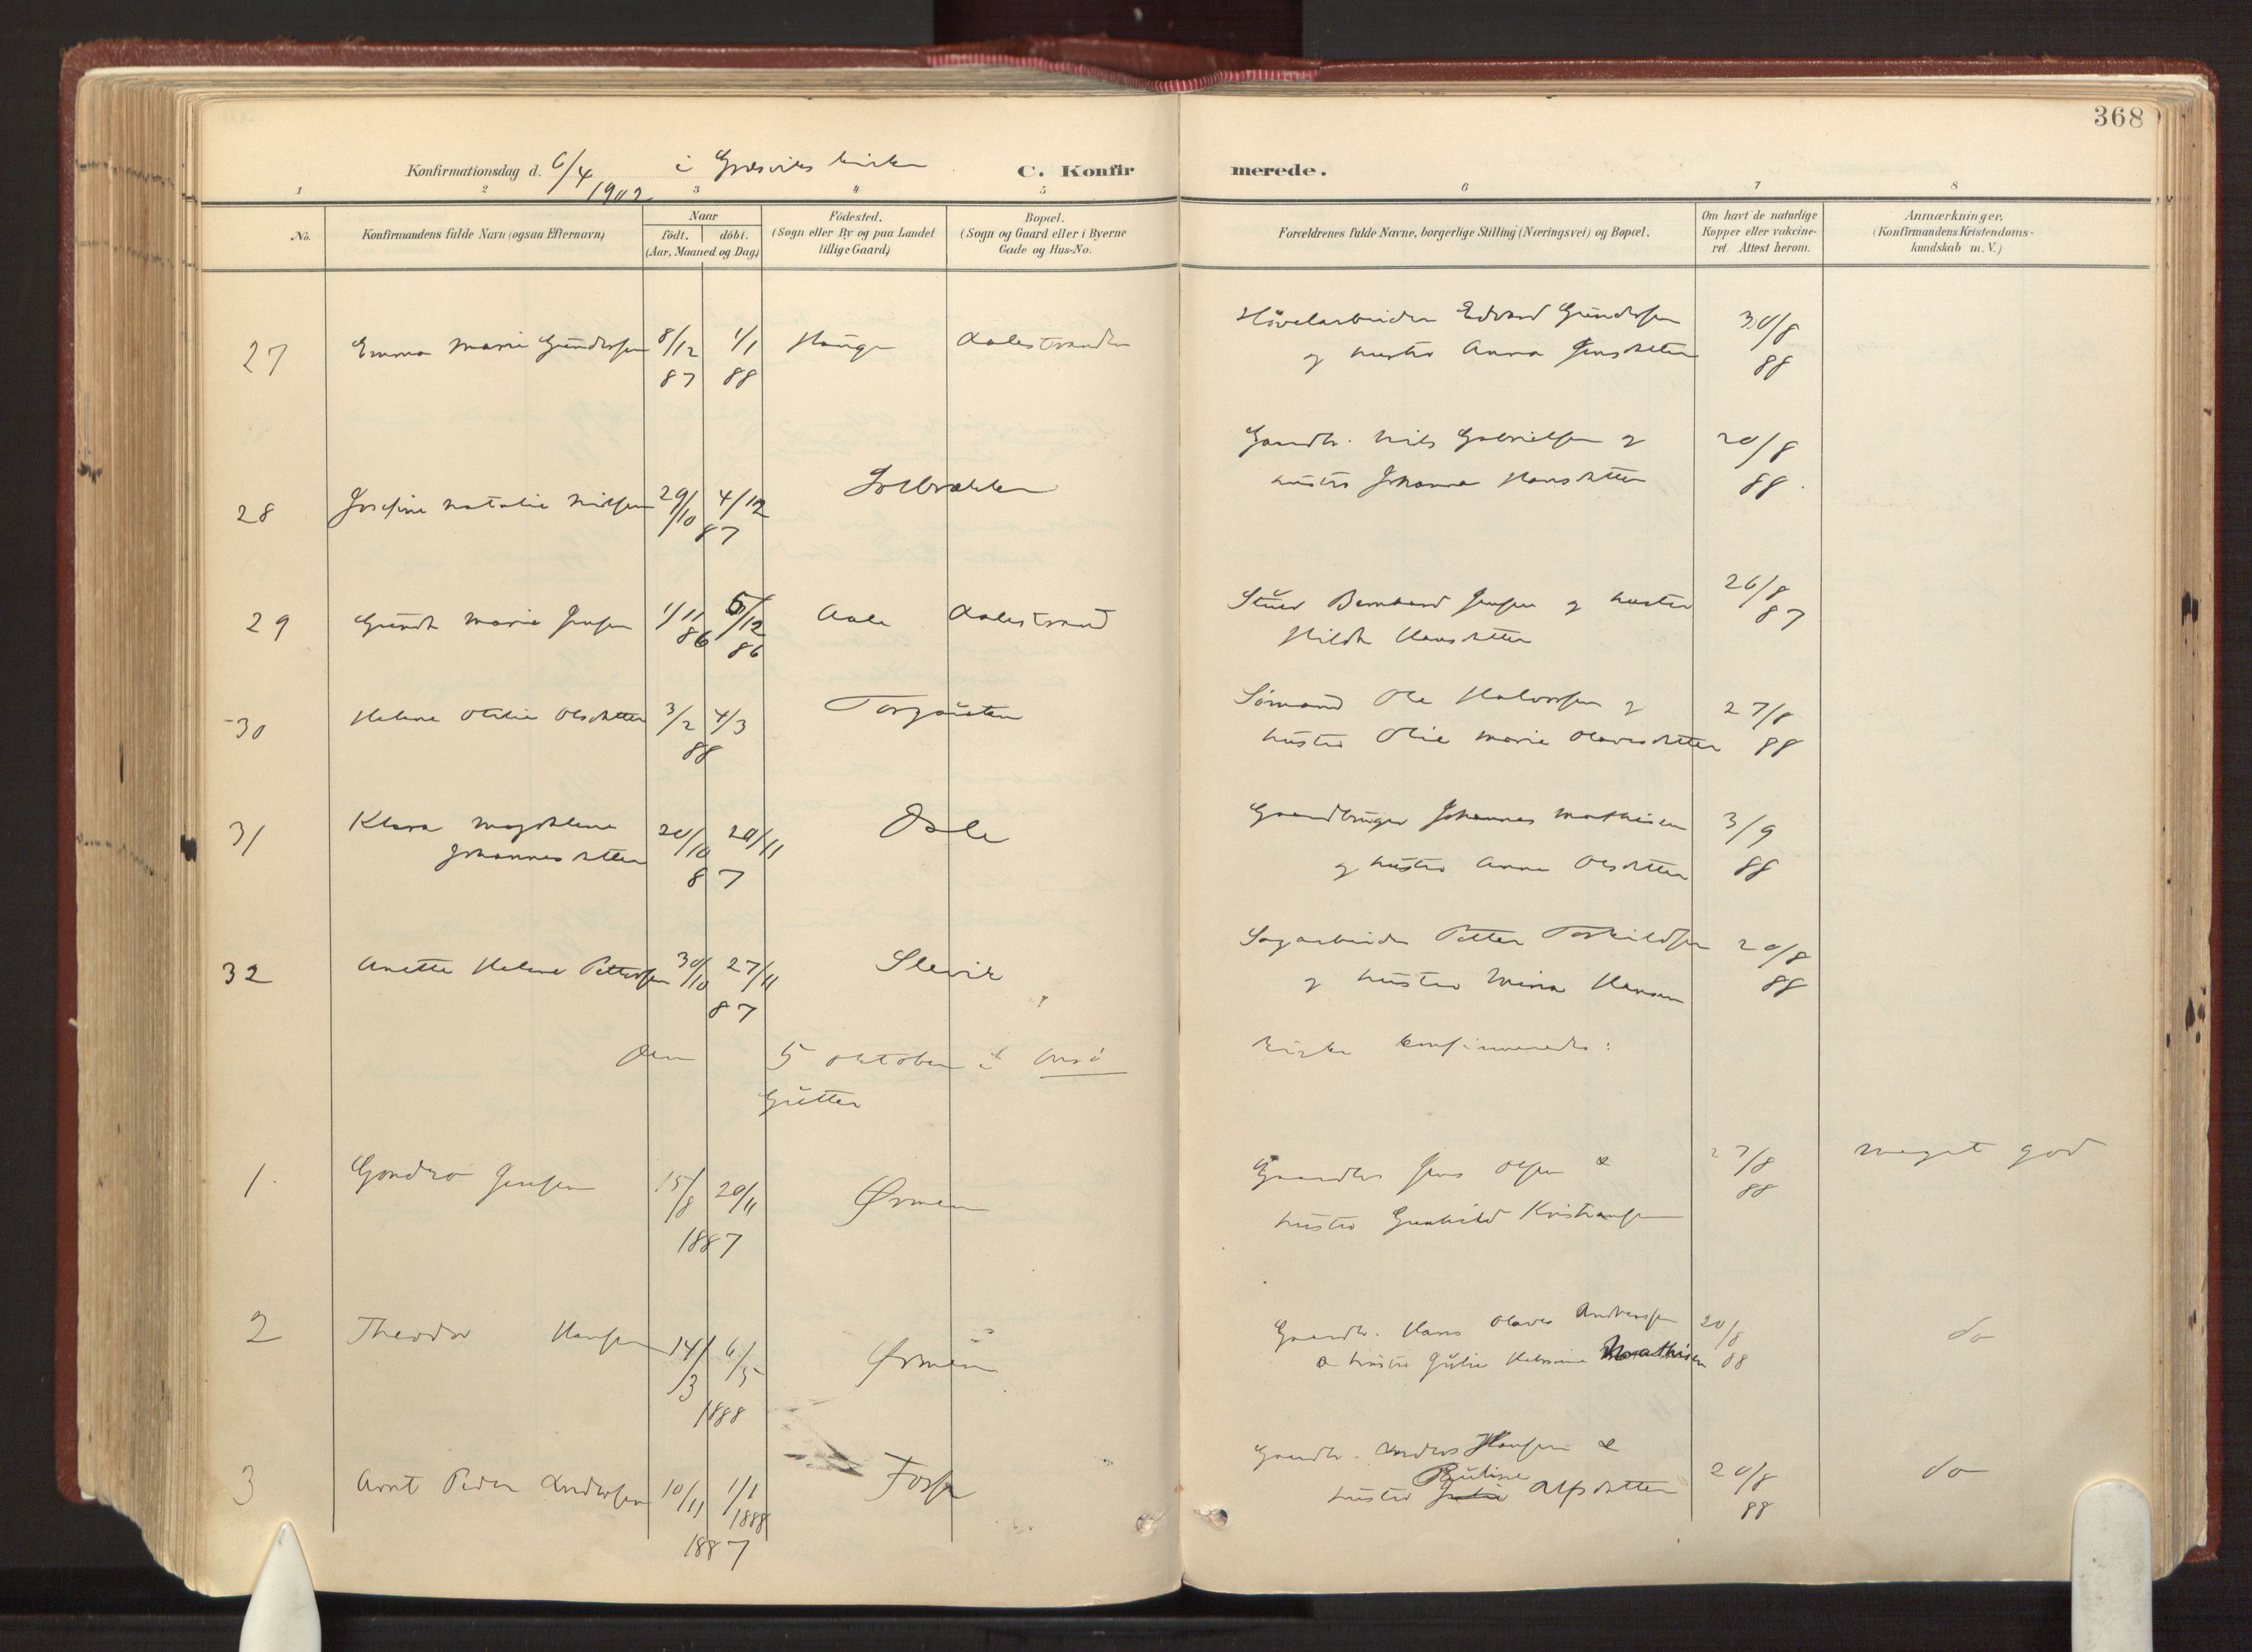 368
Konfirmationsdag d. 6/4 1902 i Græsvik kirke
C. Konfirmerede.
1 2 3 4 5 6 7 8
No.
Konfirmandens fulde Navn (ogsaa Efternavn)
Naar
født. døbt.
(Aar, Maaned og Dag)
Födested.
(Sogn eller By og paa Landet
tillige Gaard)
Bopæl.
(Sogn og Gaard eller i Byerne
Gade og Hus-No.
Forældrenes fulde Navne, borgerlige Stilling (Næringsvei) og Bopæl.
Om havt de naturlige
Kopper eller vakcine-
ret. Attest herom.
Anmærkninger.
(Konfirmandens Kristendoms-
kundskab m. V.)
27 Emma Marie Gundersen 8/12 87 1/1 88 Hauge Aalestranden
Høvelarbeider Edvard Gundersen 30/8
og hustru Anna Jensdatter 88
28 Josefine Natalie Nilsen 29/10 4/12 87
Gaardbr. Nils Gabrielsen og 20/8
hustru Johanna Hansdatter 88
29 Gunda Marie Jensen 1/11 86 5/12 86 Aale Aalestrand
Bernhard Jensen og hustru 26/8
Hilda Hansdatter 87
30 Helene Otilie Olsdatter 3/2 4/3 88 Torgauten
Sømand Ole Halvorsen og 27/8
hustru Olie Marie Olavesdatter 88
31 Klara Magdalene
Johannesdatter 20/10 20/11 87 Oale
Gaardbruger Johannes Mathisen 3/9
og hustru Anne Olsdatter 88
32 Anette Helene Pettersen 30/10 27/11 87 Slevik
Sagarbeider Petter Torkildsen 20/8
og hustru Mina Hansen 88
Den 5 oktober i Onsø Kirke konfirmerede:
Gutter
1. Jensen 15/8 20/11 1887 Ørmen
Gaardbr Jens Olsen & 27/8 meget god
hustru Gunhild Kristiansen 88
2 Theodor Hansen 14/3 6/5 1888 Ørmen
Gaardbr. Hans Olaves Andreassen 20/8 do
& hustru Julie Helmine Mathisen 88
3 Arnt Peder Andersen 10/11 1887 1/1 1888 Fosse
Gaardbr. Anders Hansen &
Pauline
hustru Julie Alfsdatter 20/8 88 do